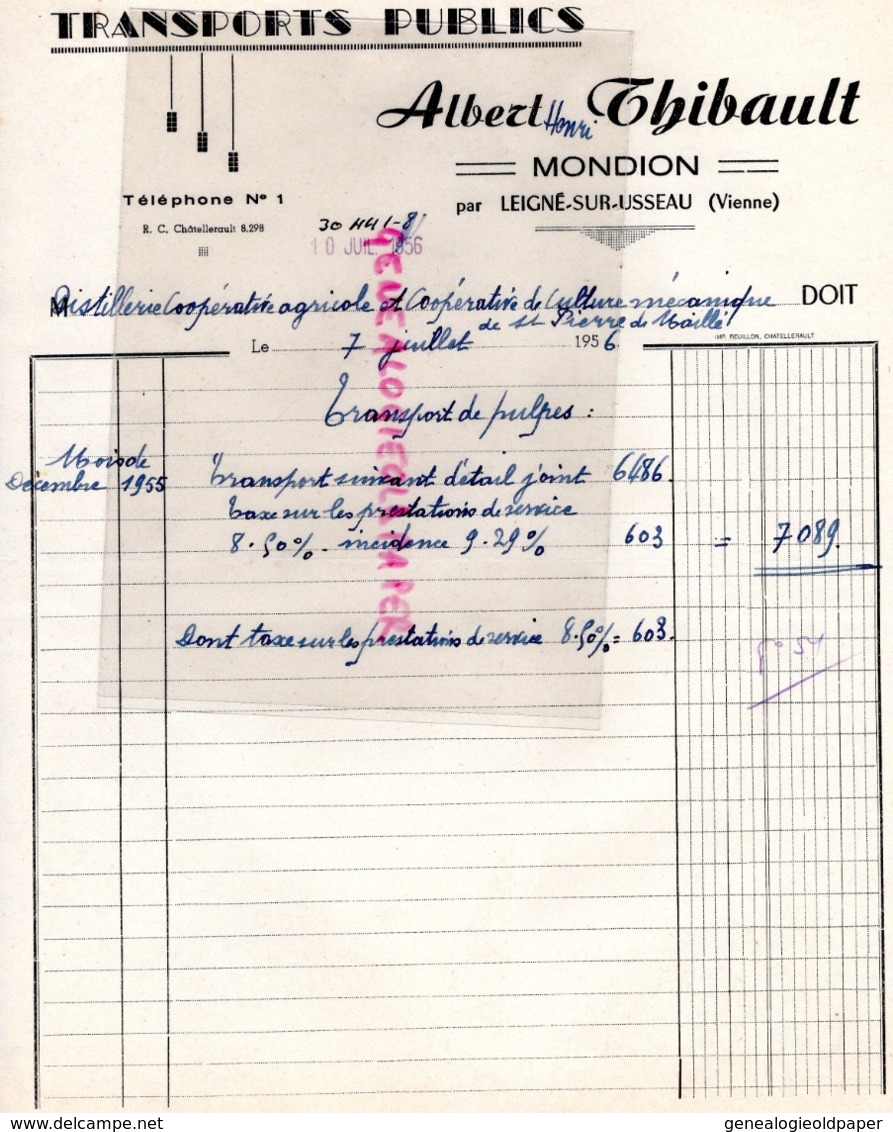 TRANSPORTS PUBLICS
Albert Henri Thibault
MONDION
par LEIGNÉ-SUR-USSEAU (Vienne)
Téléphone N° 1
R. C. Châtellerault 8.298
30441-8
10 JUIL. 1956
M Distillerie Coopérative agricole et Coopérative de Culture mécanique DOIT
de St Pierre de Maillé
IMP. REUILLON, CHATELLERAULT
Le 7 juillet 1956
Transport de pulpes :
Mois de
Décembre 1955 Transport suivant détail joint 6486.
Taxe sur les prestations de service
8.50% - incidence 9.29% 603 = 7089.
Dont taxe sur les prestations de service 8.50% = 603.
GENEALOGIECLAPAPER
www.delcampe.net
genealogieoldpaper